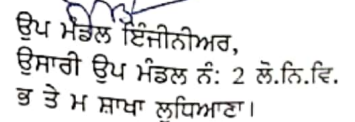 ਉਪ ਮੰਡਲ ਇੰਜੀਨੀਅਰ,
ਉਸਾਰੀ ਉਪ ਮੰਡਲ ਨੰ: 2 ਲੋ.ਨਿ.ਵਿ.
ਭ ਤੇ ਮ ਸ਼ਾਖਾ ਲੁਧਿਆਣਾ।